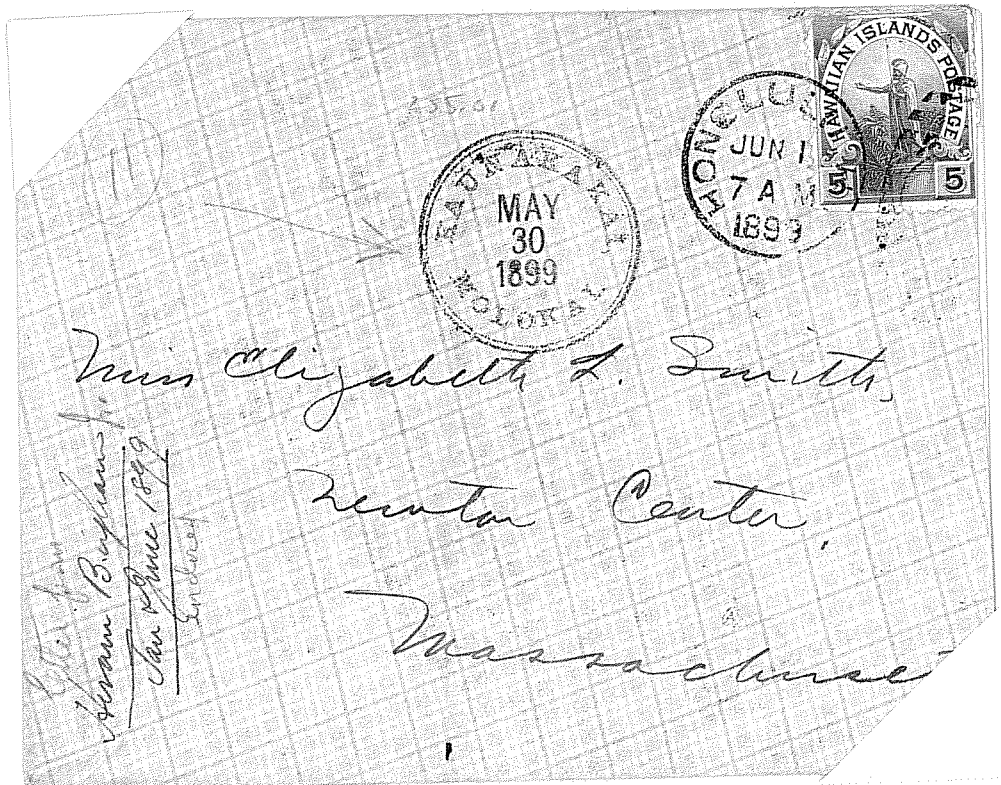 HAWAIIAN ISLANDS POSTAGE
5 5
HONOLULU
JUN 1
7 AM
1899
KAUNAKAKAI
MAY
30
1899
MOLOKAI
Miss Elizabeth L. Smith,
Newton Center,
Massachuse
Letter from
Hiram Bingham
Jan & June 1899
Enclosed